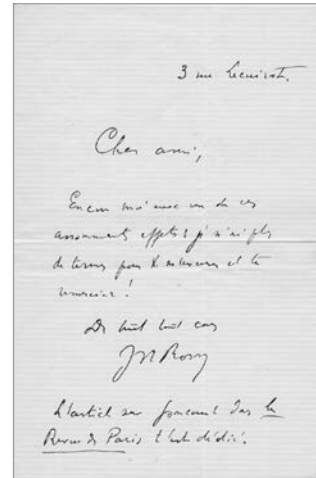 3 rue
Cher ami,
Encore moi avec un de ces
assommants effets ! je n'ai plus
de termes pour t'
et te
remercier !
De tout tout cœur
J H Rosny
L'article sur Goncourt dans la
Revue de Paris t'est dédié.